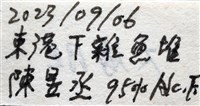 2023/09/06
東港下雜魚堆
陳昱丞 95% Alc.